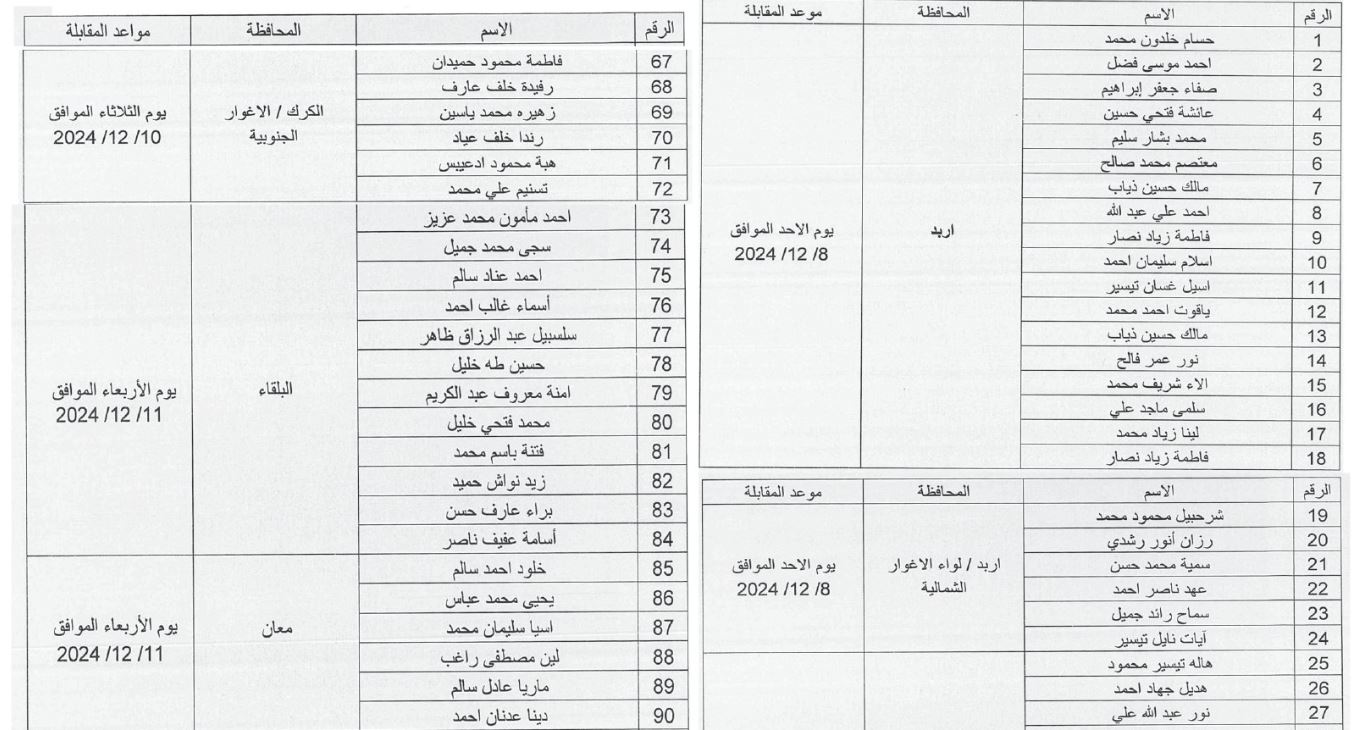 الرقم الاسم المحافظة موعد المقابلة
1 حسام خلدون محمد
2 احمد موسى فضل
3 صفاء جعفر إبراهيم
4 عائشة فتحي حسين
5 محمد بشار سليم
6 معتصم محمد صالح
7 مالك حسين ذياب
8 احمد علي عبد الله
اربد
يوم الاحد الموافق
8/ 12/ 2024
9 فاطمة زياد نصار
10 اسلام سليمان احمد
11 اسيل غسان تيسير
12 ياقوت احمد محمد
13 مالك حسين ذياب
14 نور عمر فالح
15 الاء شريف محمد
16 سلمى ماجد علي
17 لينا زياد محمد
18 فاطمة زياد نصار
الرقم الاسم المحافظة موعد المقابلة
19 شرحبيل محمود محمد
20 رزان أنور رشدي
21 سمية محمد حسن
اربد / لواء الاغوار
الشمالية
يوم الاحد الموافق
8/ 12/ 2024
22 عهد ناصر احمد
23 سماح رائد جميل
24 آيات نايل تيسير
25 هاله تيسير محمود
26 هديل جهاد احمد
27 نور عبد الله علي
الرقم الاسم المحافظة مواعد المقابلة
67 فاطمة محمود حميدان
68 رفيدة خلف عارف
69 زهيره محمد ياسين
الكرك / الاغوار
الجنوبية
يوم الثلاثاء الموافق
10/ 12/ 2024
70 رندا خلف عياد
71 هبة محمود ادعيبس
72 تسنيم علي محمد
73 احمد مأمون محمد عزيز
74 سجى محمد جميل
75 احمد عناد سالم
76 أسماء غالب احمد
77 سلسبيل عبد الرزاق ظاهر
78 حسين طه خليل
79 امنة معروف عبد الكريم
البلقاء
يوم الأربعاء الموافق
11/ 12/ 2024
80 محمد فتحي خليل
81 فتنة باسم محمد
82 زيد نواش حميد
83 براء عارف حسن
84 أسامة عفيف ناصر
85 خلود احمد سالم
86 يحيى محمد عباس
87 اسيا سليمان محمد
معان
يوم الأربعاء الموافق
11/ 12/ 2024
88 لين مصطفى راغب
89 ماريا عادل سالم
90 دينا عدنان احمد